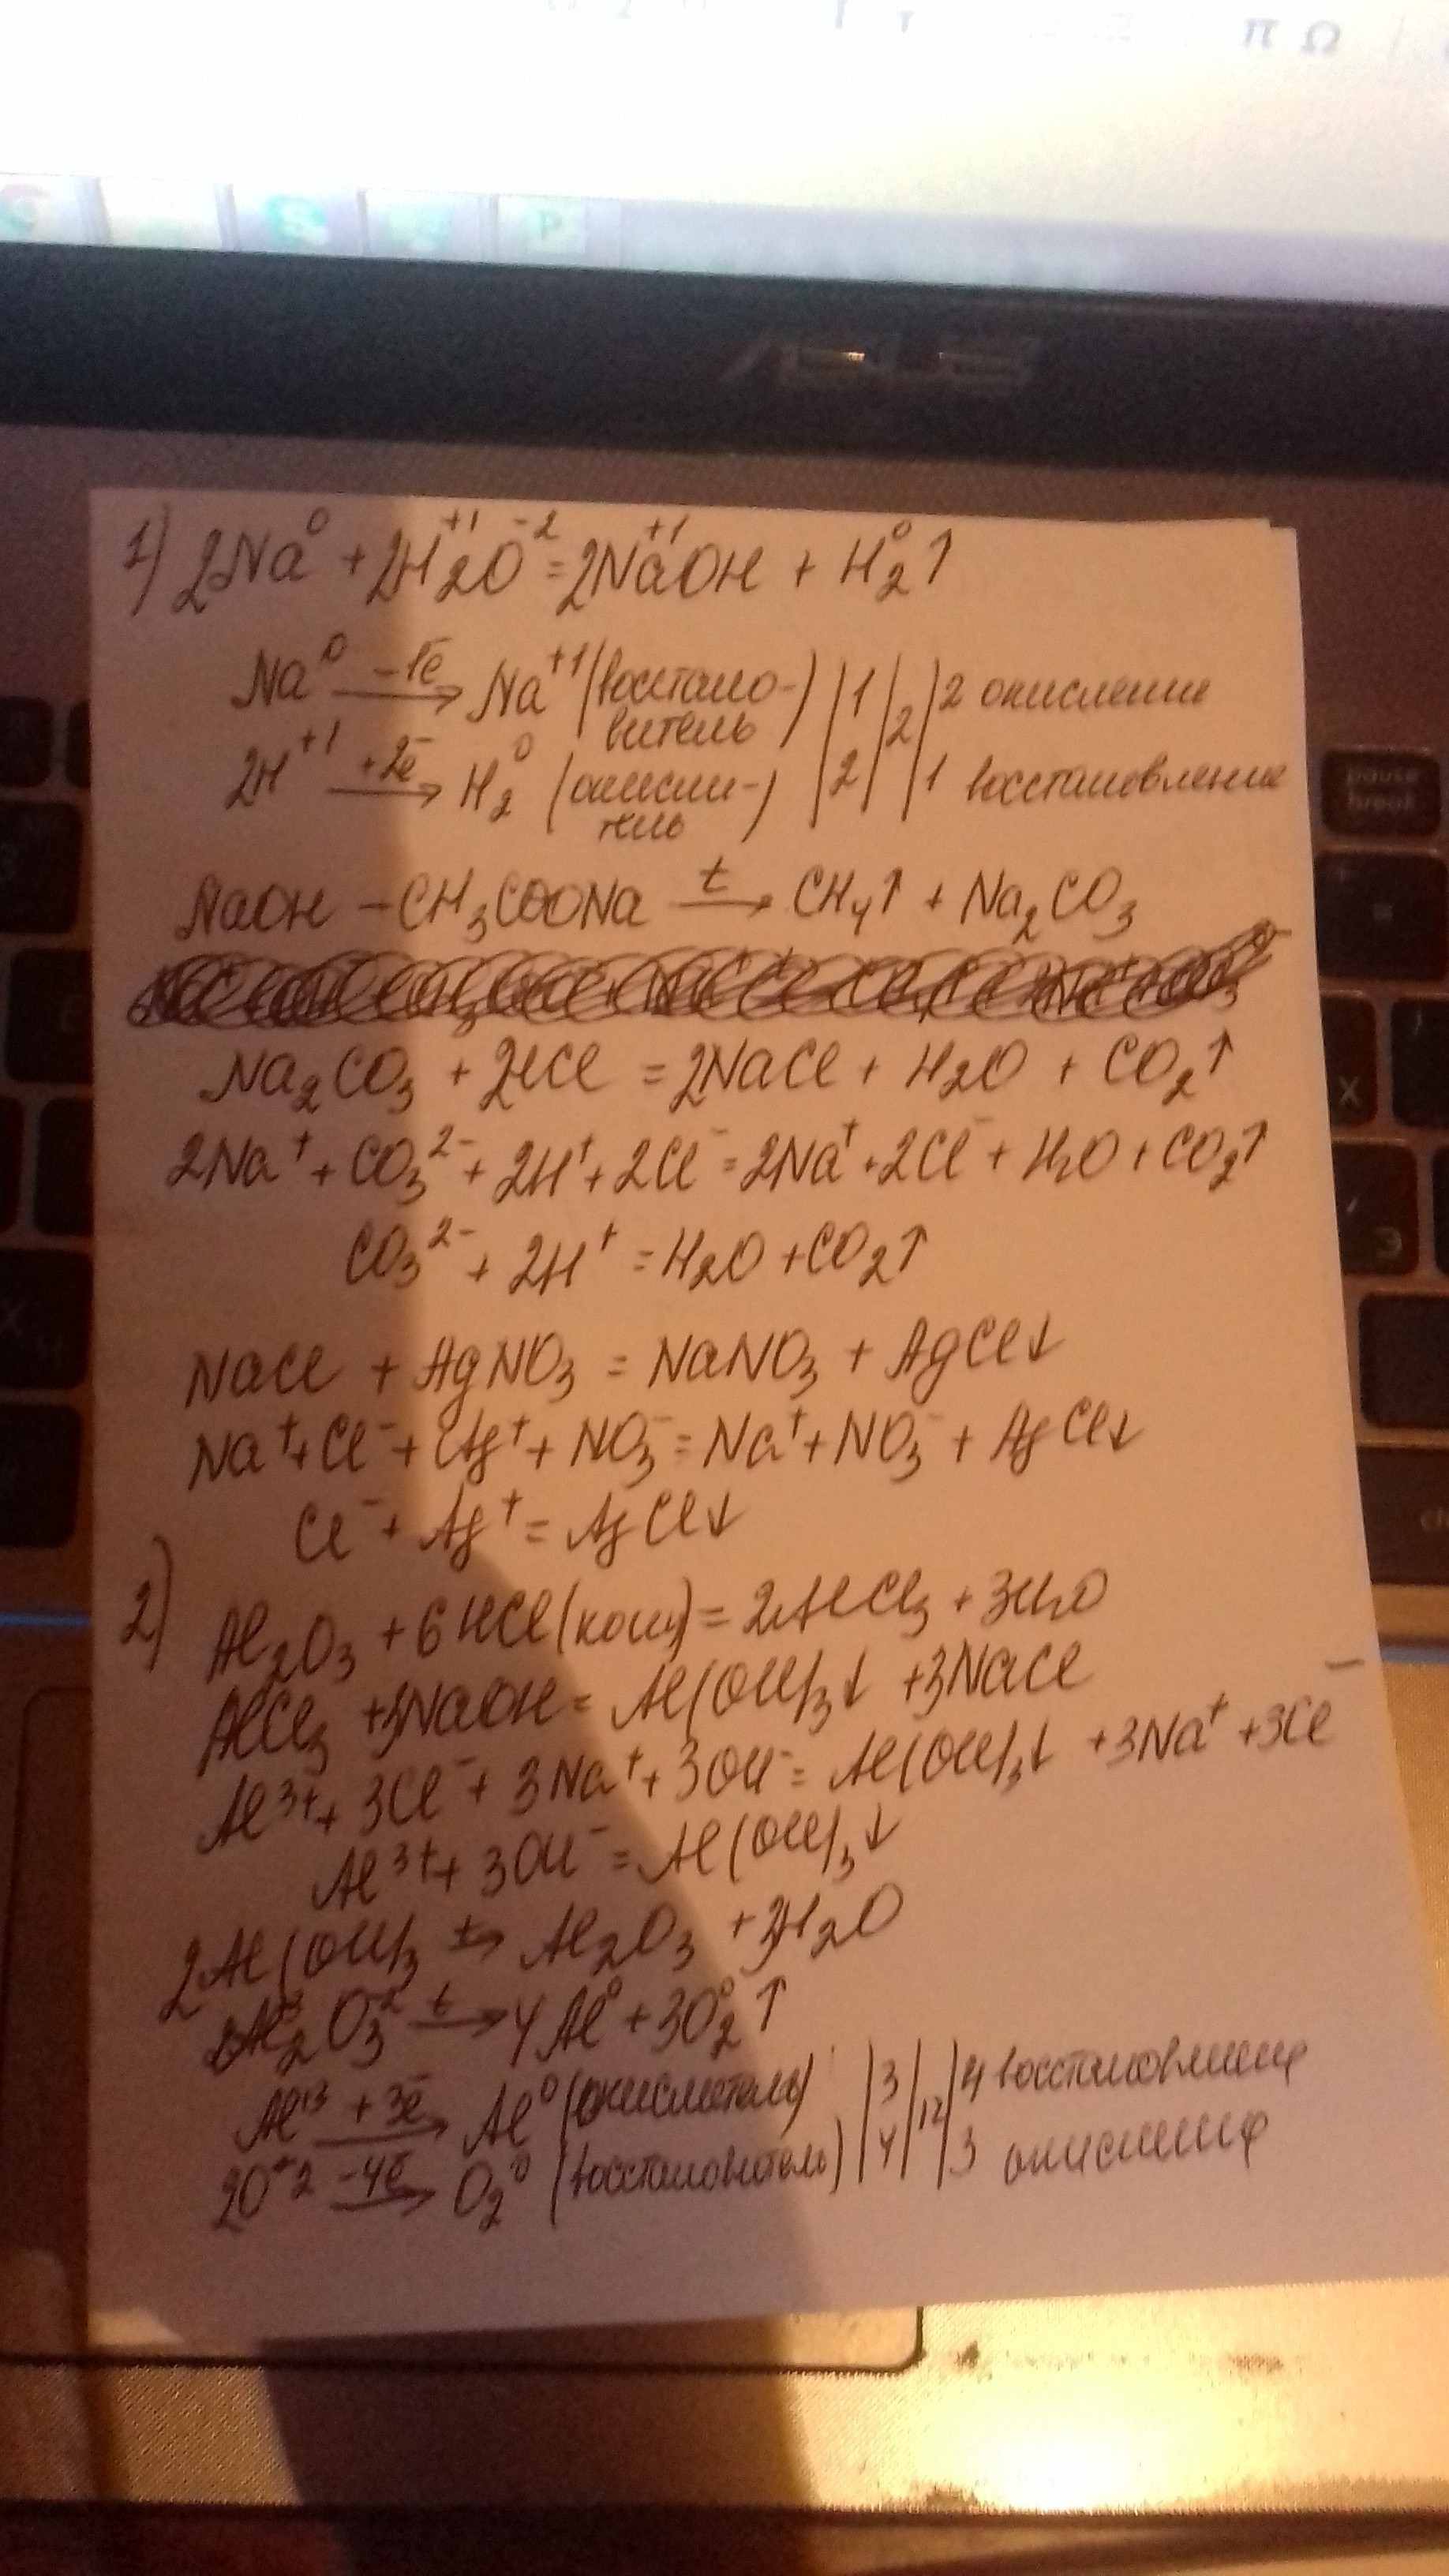 π Ω
ASUS
pause
break
1) 2Na⁰ + 2H₂⁺¹O⁻² = 2Na⁺¹OH + H₂⁰↑
Na⁰ –1ē→ Na⁺¹ (восстано-) | 1 | 2 | 2 окисление
витель
2H⁺¹ +2ē→ H₂⁰ (окисли-) | 2 | | 1 восстановление
тель
NaOH – CH₃COONa t→ CH₄↑ + Na₂CO₃
Na₂CO₃ + 2HCl = 2NaCl + H₂O + CO₂↑
2Na⁺ + CO₃²⁻ + 2H⁺ + 2Cl⁻ = 2Na⁺ + 2Cl⁻ + H₂O + CO₂↑
CO₃²⁻ + 2H⁺ = H₂O + CO₂↑
NaCl + AgNO₃ = NaNO₃ + AgCl↓
Na⁺ + Cl⁻ + Ag⁺ + NO₃⁻ = Na⁺ + NO₃⁻ + AgCl↓
Cl⁻ + Ag⁺ = AgCl↓
2) Al₂O₃ + 6HCl (конц) = 2AlCl₃ + 3H₂O
AlCl₃ + 3NaOH = Al(OH)₃↓ + 3NaCl
Al³⁺ + 3Cl⁻ + 3Na⁺ + 3OH⁻ = Al(OH)₃↓ + 3Na⁺ + 3Cl⁻
Al³⁺ + 3OH⁻ = Al(OH)₃↓
2Al(OH)₃ t→ Al₂O₃ + 3H₂O
2Al₂⁺³O₃⁻² t→ 4Al⁰ + 3O₂⁰↑
Al⁺³ +3ē→ Al⁰ (окислитель) | 3 | 12 | 4 восстановление
2O⁻² –4ē→ O₂⁰ (восстановитель) | 4 | | 3 окисление